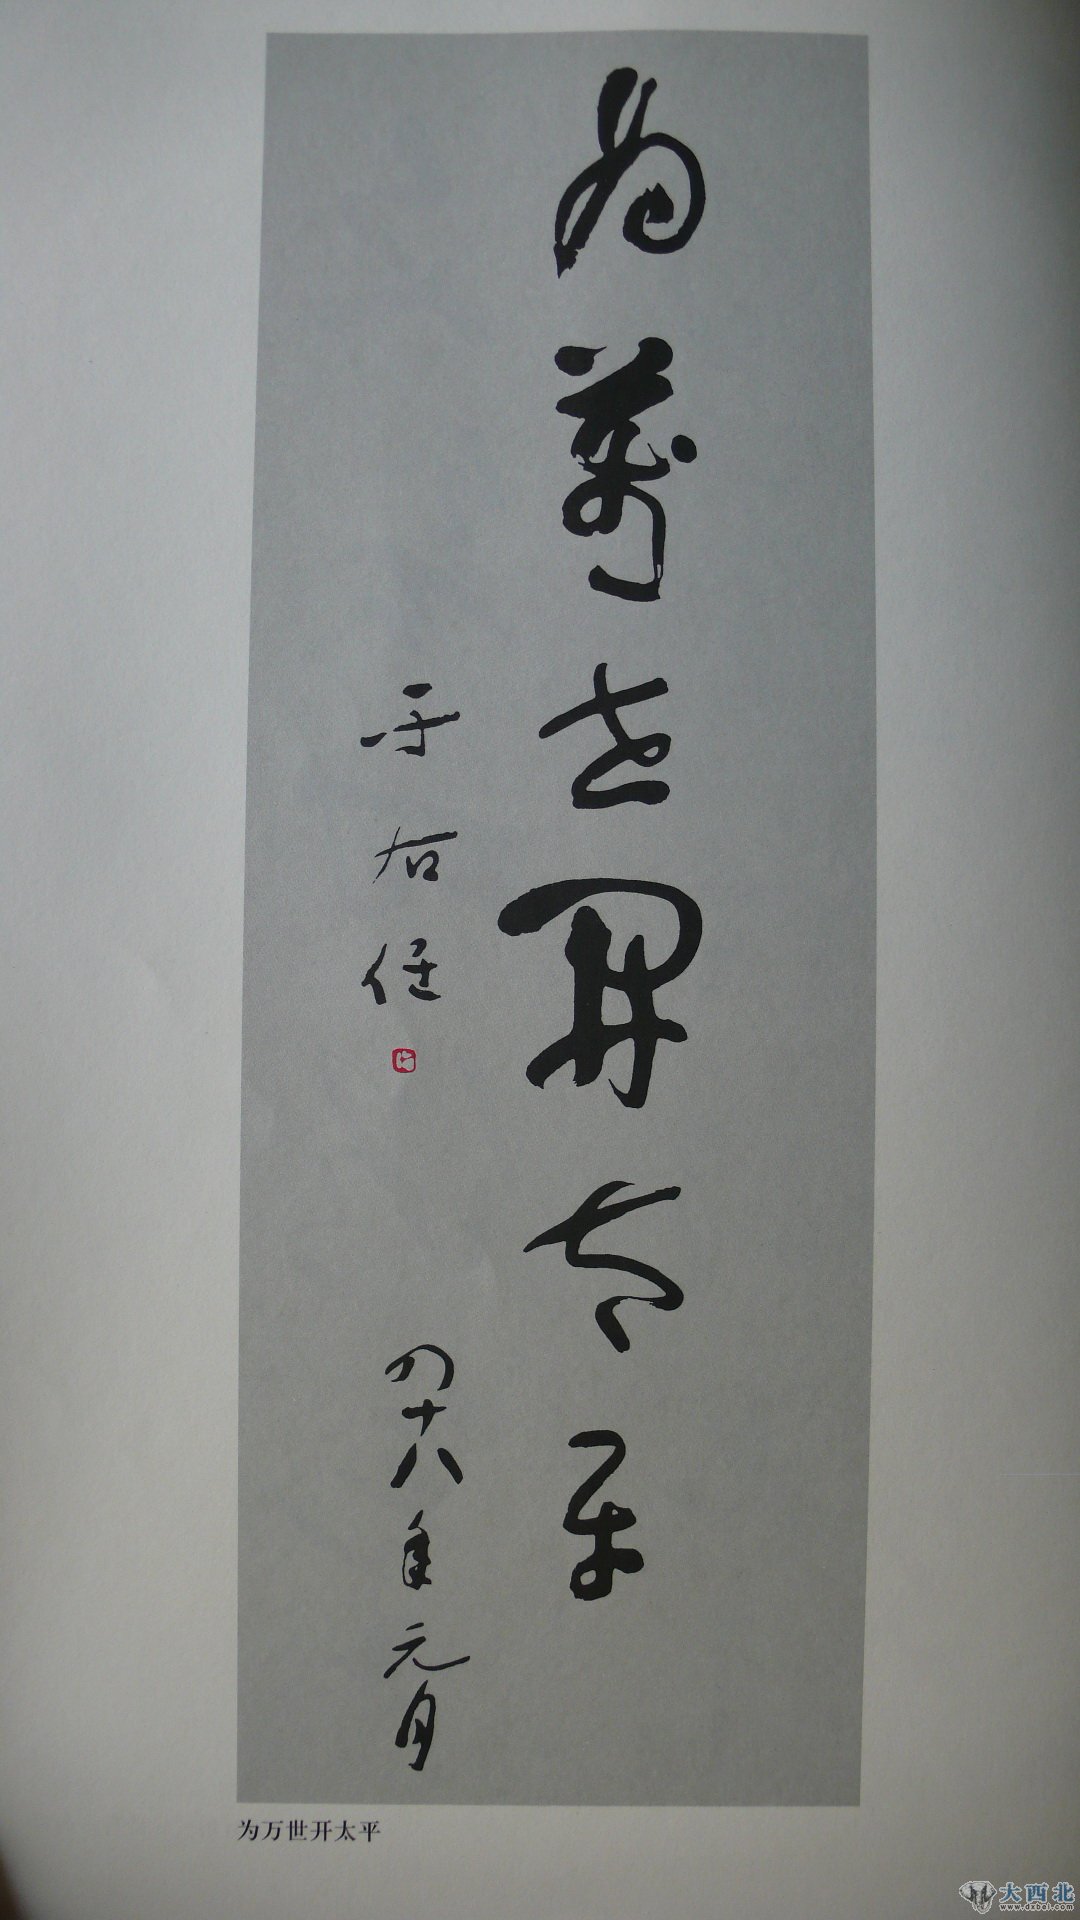 為萬世開太平
于右任
四十八年元月
为万世开太平
大西北
www.dxbei.com